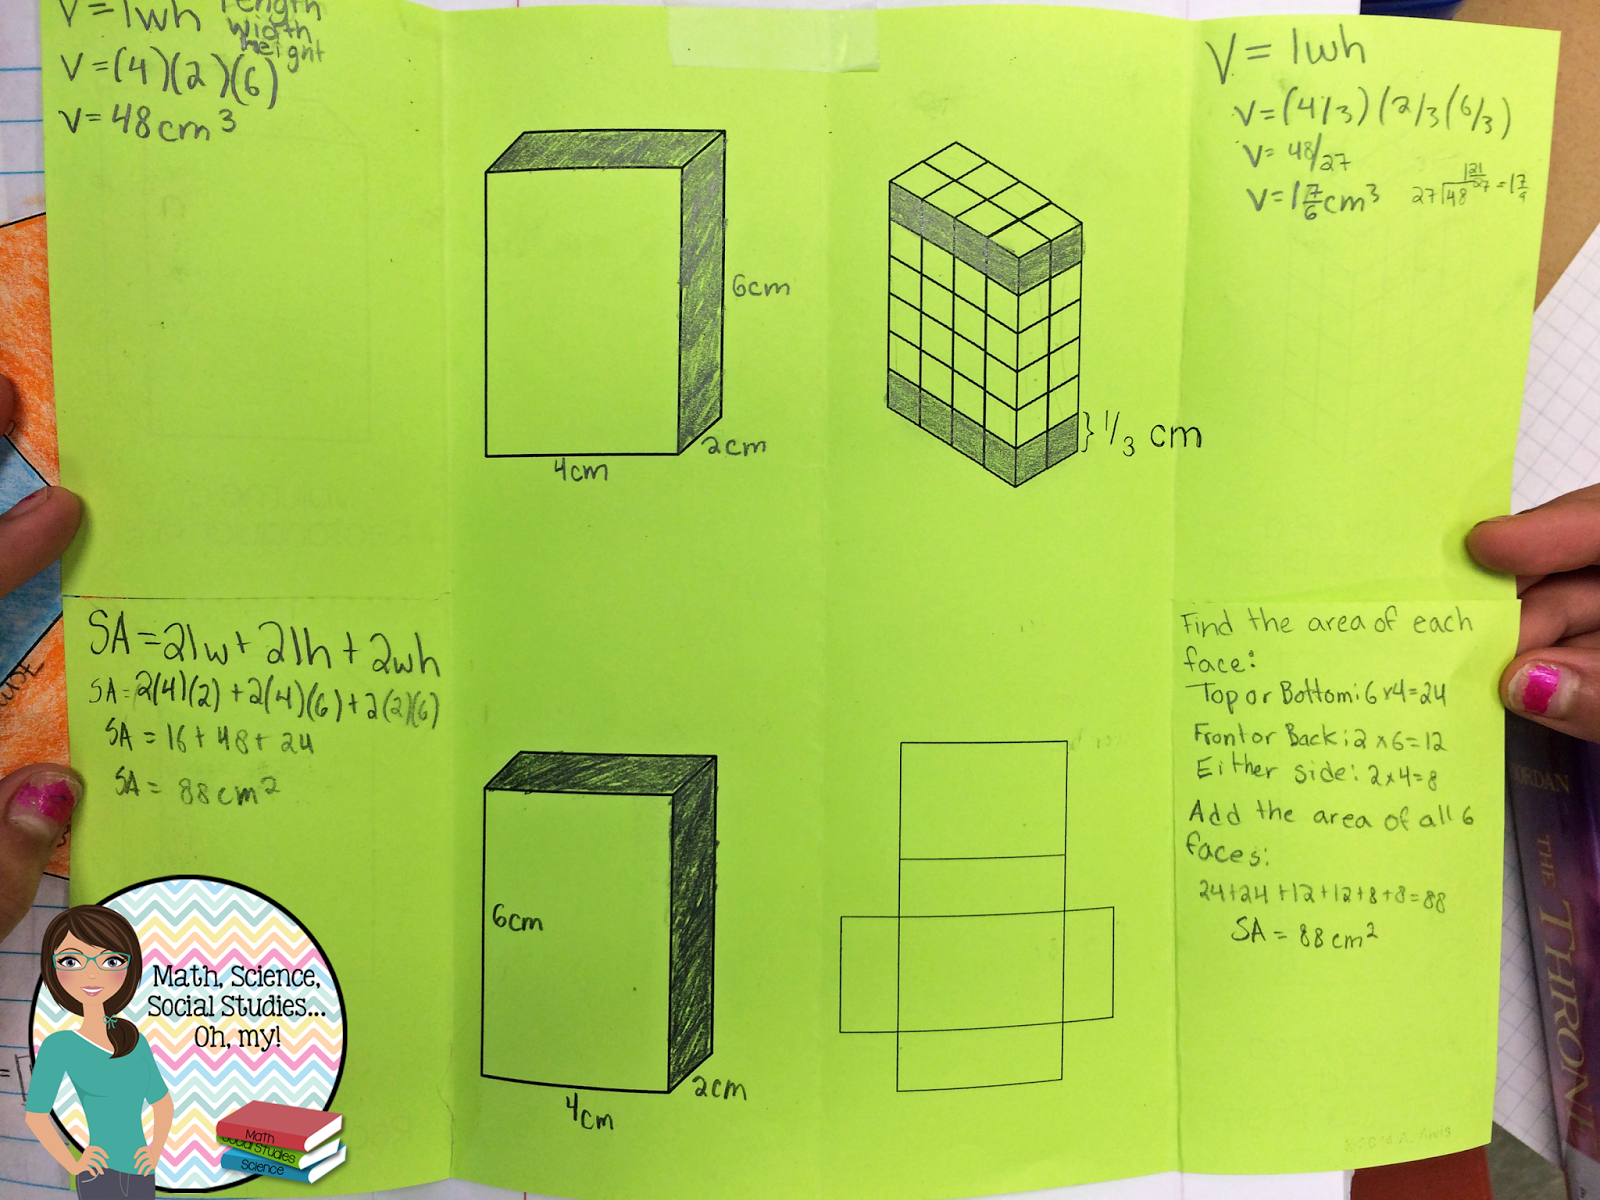 V = lwh length
width
height
V = (4)(2)(6)
V = 48cm³
6cm
2cm
4cm
}1/3 cm
V = lwh
V = (4/3)(2/3(6/3)
V = 48/27
V = 1 7/6 cm³
SA = 2lw + 2lh + 2wh
SA = 2(4)(2) + 2(4)(6) + 2(2)(6)
SA = 16 + 48 + 24
SA = 88cm²
6cm
2cm
4cm
Find the area of each
face:
Top or Bottom: 6 x 4 = 24
Front or Back: 2 x 6 = 12
Either side: 2 x 4 = 8
Add the area of all 6
faces:
24+24+12+12+8+8=88
SA = 88 cm²
Math, Science,
Social Studies...
Oh, my!
Math
Social Studies
Science
JORDAN
THE
THRONE